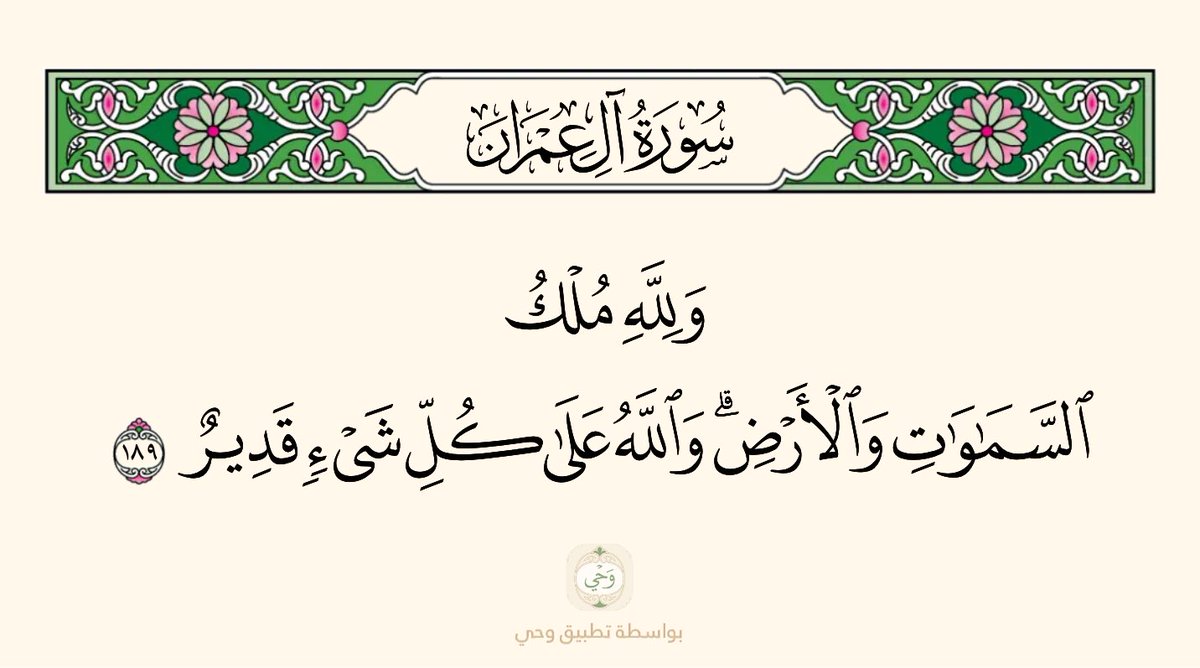 سُورَةُ آلِ عِمْرَانَ
وَلِلَّهِ مُلْكُ
ٱلسَّمَـٰوَٰتِ وَٱلْأَرْضِ ۗ وَٱللَّهُ عَلَىٰ كُلِّ شَىْءٍ قَدِيرٌ ١٨٩
وَحْي
بواسطة تطبيق وحي